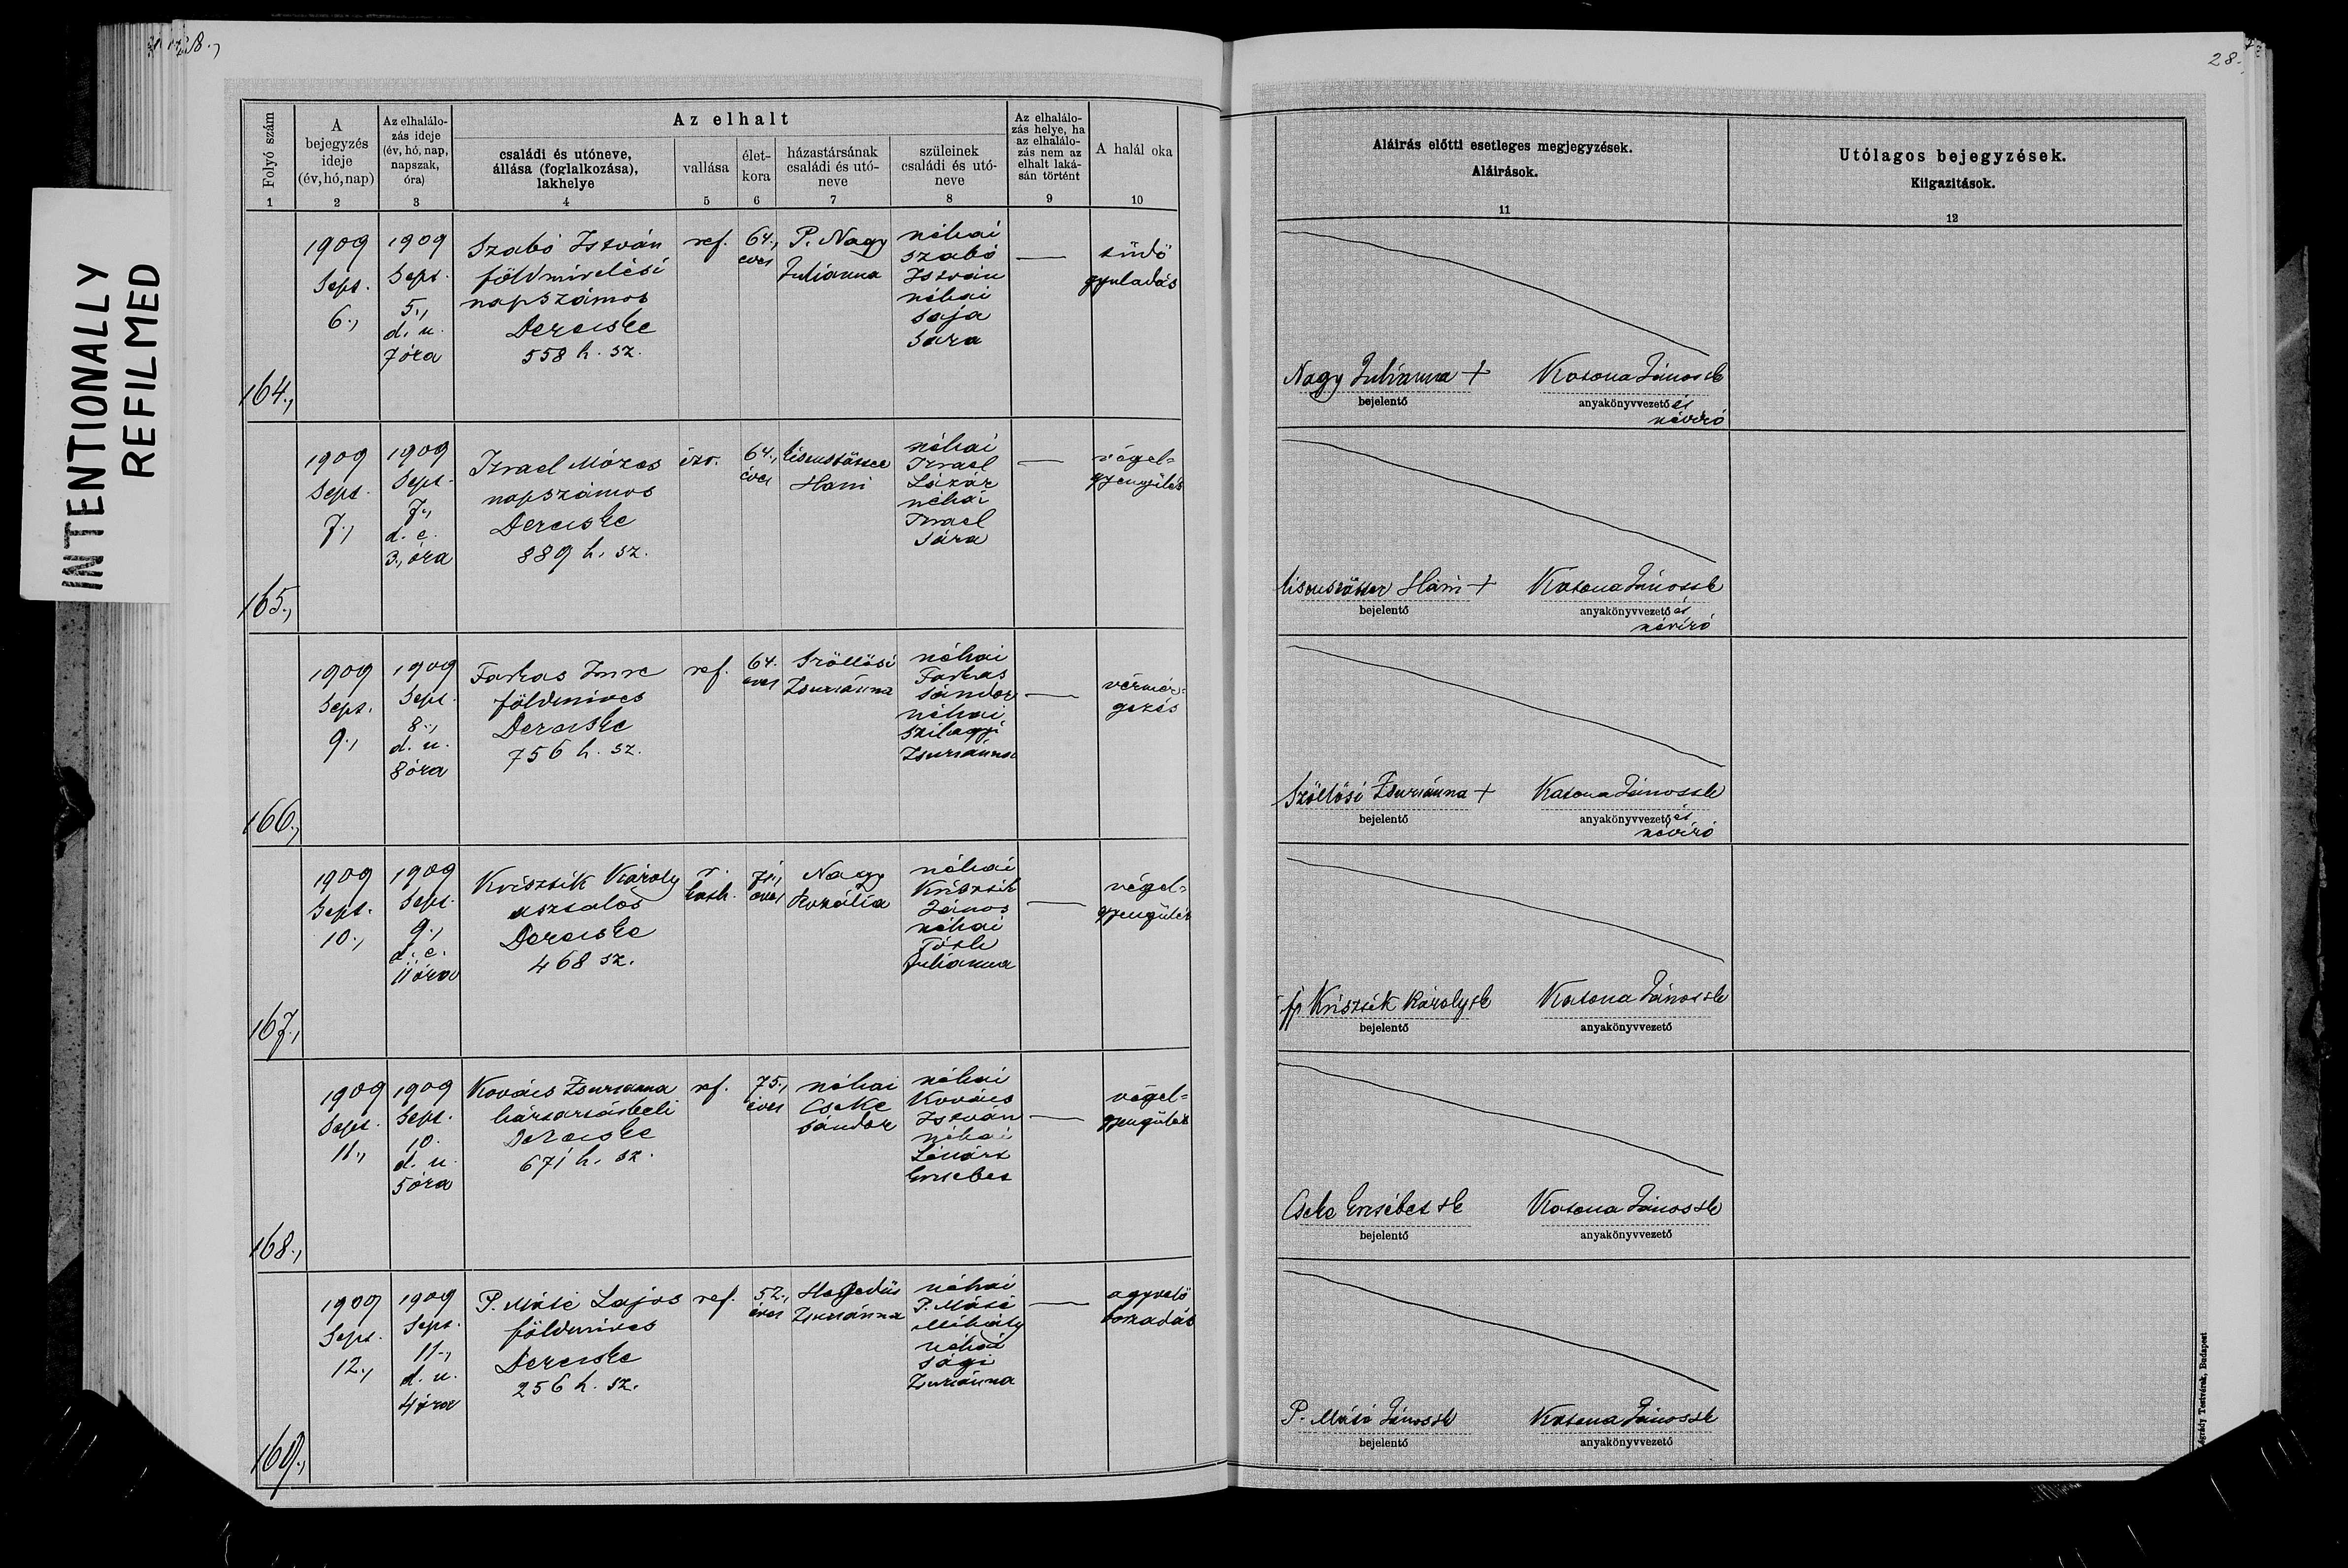 28.,
28.,
INTENTIONALLY
REFILMED
Folyó szám
1
A
bejegyzés
ideje
(év, hó, nap)
2
Az elhalálo-
zás ideje
(év, hó, nap,
napszak,
óra)
3
Az elhalt
családi és utóneve,
állása (foglalkozása),
lakhelye
4
vallása
5
élet-
kora
6
házastársának
családi és utó-
neve
7
szüleinek
családi és utó-
neve
8
Az elhalálo-
zás helye, ha
az elhalálo-
zás nem az
elhalt laká-
sán történt
9
A halál oka
10
Aláírás előtti esetleges megjegyzések.
Aláírások.
11
Utólagos bejegyzések.
Kiigazítások.
12
164.,
1909
Sept.
6.,
1909
Sept.
5.,
d. u.
7 óra
Szabó István
földmívelési
napszámos
Derecske
558 h. sz.
ref.
64.,
éves
P. Nagy
Juliánna
néhai
Szabó
István
néhai
Saja
Sára
—
tüdő
gyuladás
Nagy Juliánna +
bejelentő
Katona János sk
anyakönyvvezető és
névíró
165.,
1909
Sept.
7.,
1909
Sept.
7.,
d. e.
3., óra
Izrael Mózes
napszámos
Derecske
889 h. sz.
izr.
64.,
éves
Hani
néhai
Izrael
Lázár
néhai
Izrael
Sára
—
végel=
gyengülés
Háni +
bejelentő
Katona János sk
anyakönyvvezető és
névíró
166.,
1909
Sept.
9.,
1909
Sept.
8.,
d. u.
8 óra
Farkas Imre
földmíves
Derecske
756 h. sz.
ref.
64.
éves
Szöllősi
Zsuzsánna
néhai
Farkas
Sándor
néhai
Szilágyi
Zsuzsánna
—
vérmér=
gezés
Szöllősi Zsuzsánna +
bejelentő
Katona János sk
anyakönyvvezető és
névíró
167.,
1909
Sept.
10.,
1909
Sept.
9.,
d. e.
11 óra
Krisztik Károly
asztalos
Derecske
468 sz.
r.
kath.
éves
Nagy
Rozália
néhai
Krisztik
János
néhai
Tóth
Juliánna
—
végel=
gyengülés
ifj Krisztik Károly sk
bejelentő
Katona János sk
anyakönyvvezető
168.,
1909
Sept.
11.,
1909
Sept.
10.
d. u.
5 óra
Kovács Zsuzsanna
háztartásbeli
Derecske
671 h. sz.
ref.
75.,
éves
néhai
Cseke
Sándor
néhai
Kovács
István
néhai
Lénárt
Erzsébet
—
végel=
gyengülés
Cseke Erzsébet sk
bejelentő
Katona János sk
anyakönyvvezető
169.,
1909
Sept.
12.,
1909
Sept.
11.,
d. u.
4 óra
P. Máté Lajos
földmíves
Derecske
256 h. sz.
ref.
52.,
éves
Hegedüs
Zsuzsánna
néhai
P. Máté
Mihály
néhai
Sági
Zsuzsánna
—
agyvelő
lobzadás
P. Máté János sk
bejelentő
Katona János sk
anyakönyvvezető
Légrády Testvérek, Budapest